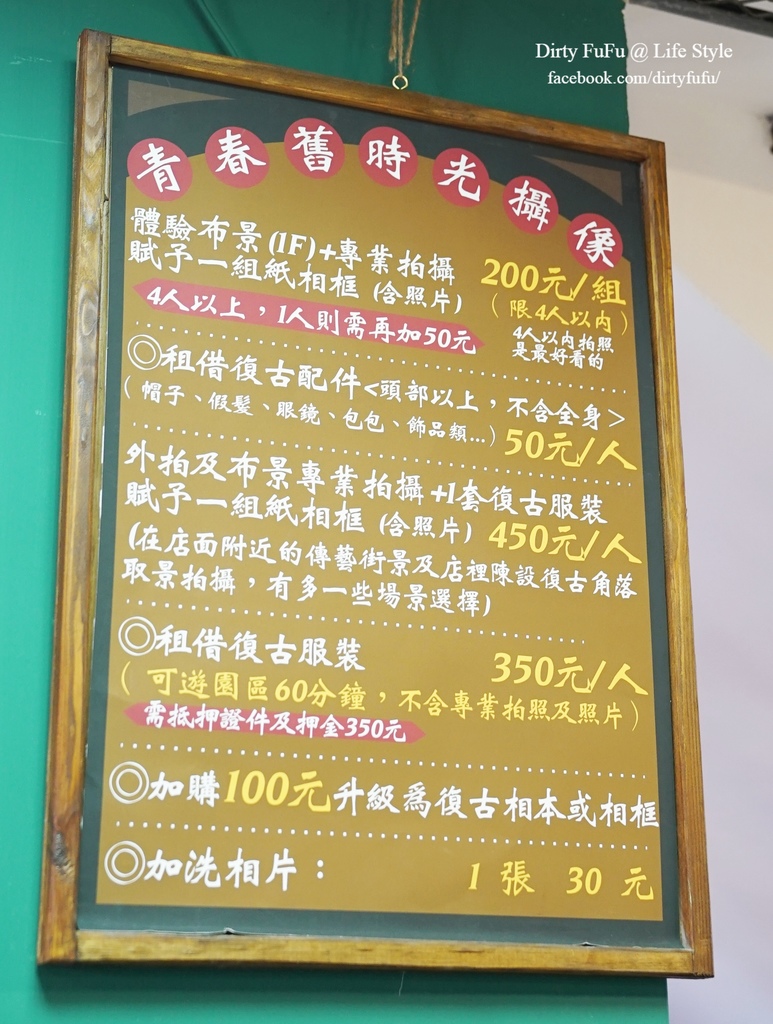 Dirty FuFu @ Life Style
facebook.com/dirtyfufu/
青春舊時光攝像
體驗布景(1F)+專業拍攝
賦予一組紙相框 (含照片)
200元/組
(限4人以內)
4人以上，1人則需再加50元
4人以內拍照
是最好看的
◎租借復古配件<頭部以上，不含全身>
(帽子、假髮、眼鏡、包包、飾品類...) 50元/人
外拍及布景專業拍攝+1套復古服裝
賦予一組紙相框 (含照片) 450元/人
(在店面附近的傳藝街景及店裡陳設復古角落
取景拍攝，有多一些場景選擇)
◎租借復古服裝 350元/人
(可遊園區60分鐘，不含專業拍照及照片)
需抵押證件及押金350元
◎加購100元升級為復古相本或相框
◎加洗相片： 1張 30元